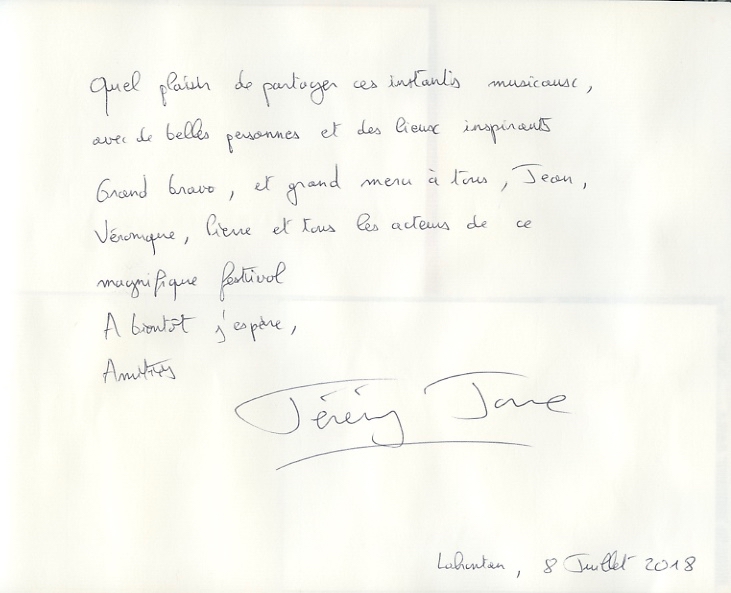 Quel plaisir de partager ces instants musicaux,
avec de belles personnes et des lieux inspirants
Grand bravo, et grand merci à tous, Jean,
Véronique, Pierre et tous les acteurs de ce
magnifique festival
A bientôt j'espère,
Amitiés
Jérémy Jouve
Labastan, 8 Juillet 2018